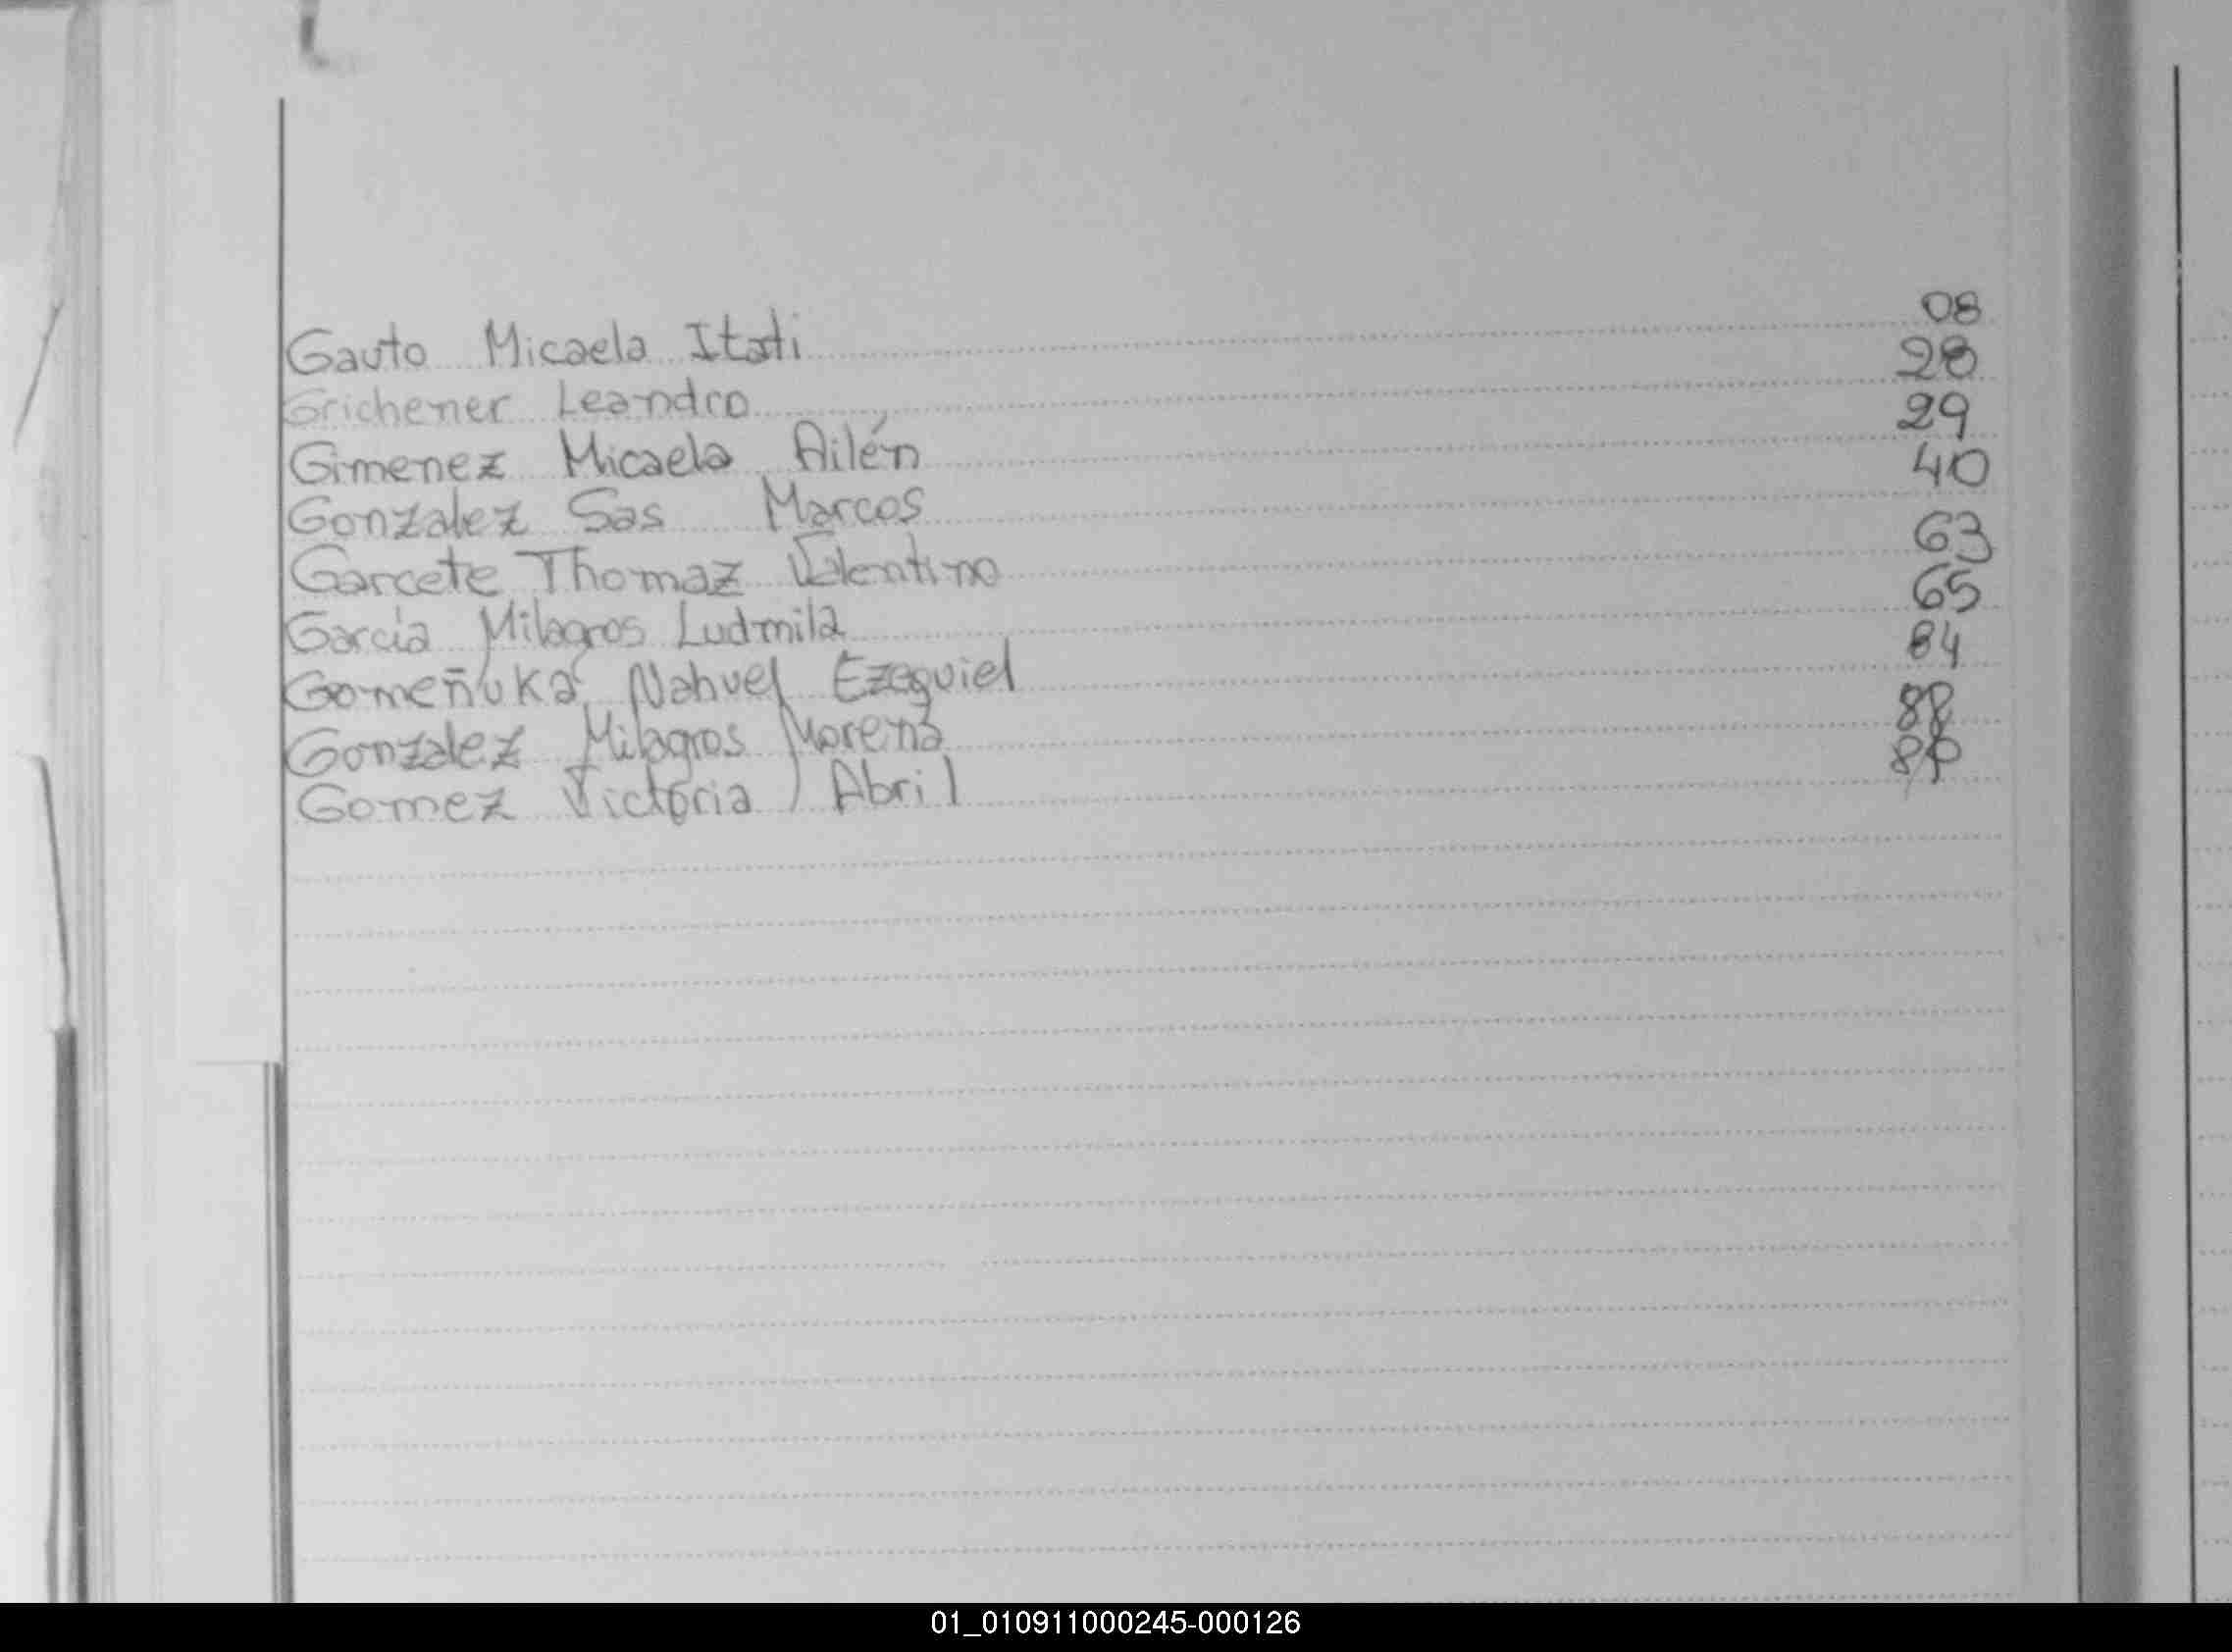 Gauto Micaela Itati 08
Grichener Leandro 28
Gimenez Micaela Ailén 29
Gonzalez Sas Marcos 40
Garcete Thomaz Valentino 63
García Milagros Ludmila 65
Gomeñuka Nahuel Ezequiel 84
Gonzalez Milagros Morena 88
Gomez Victoria Abril
01_010911000245-000126